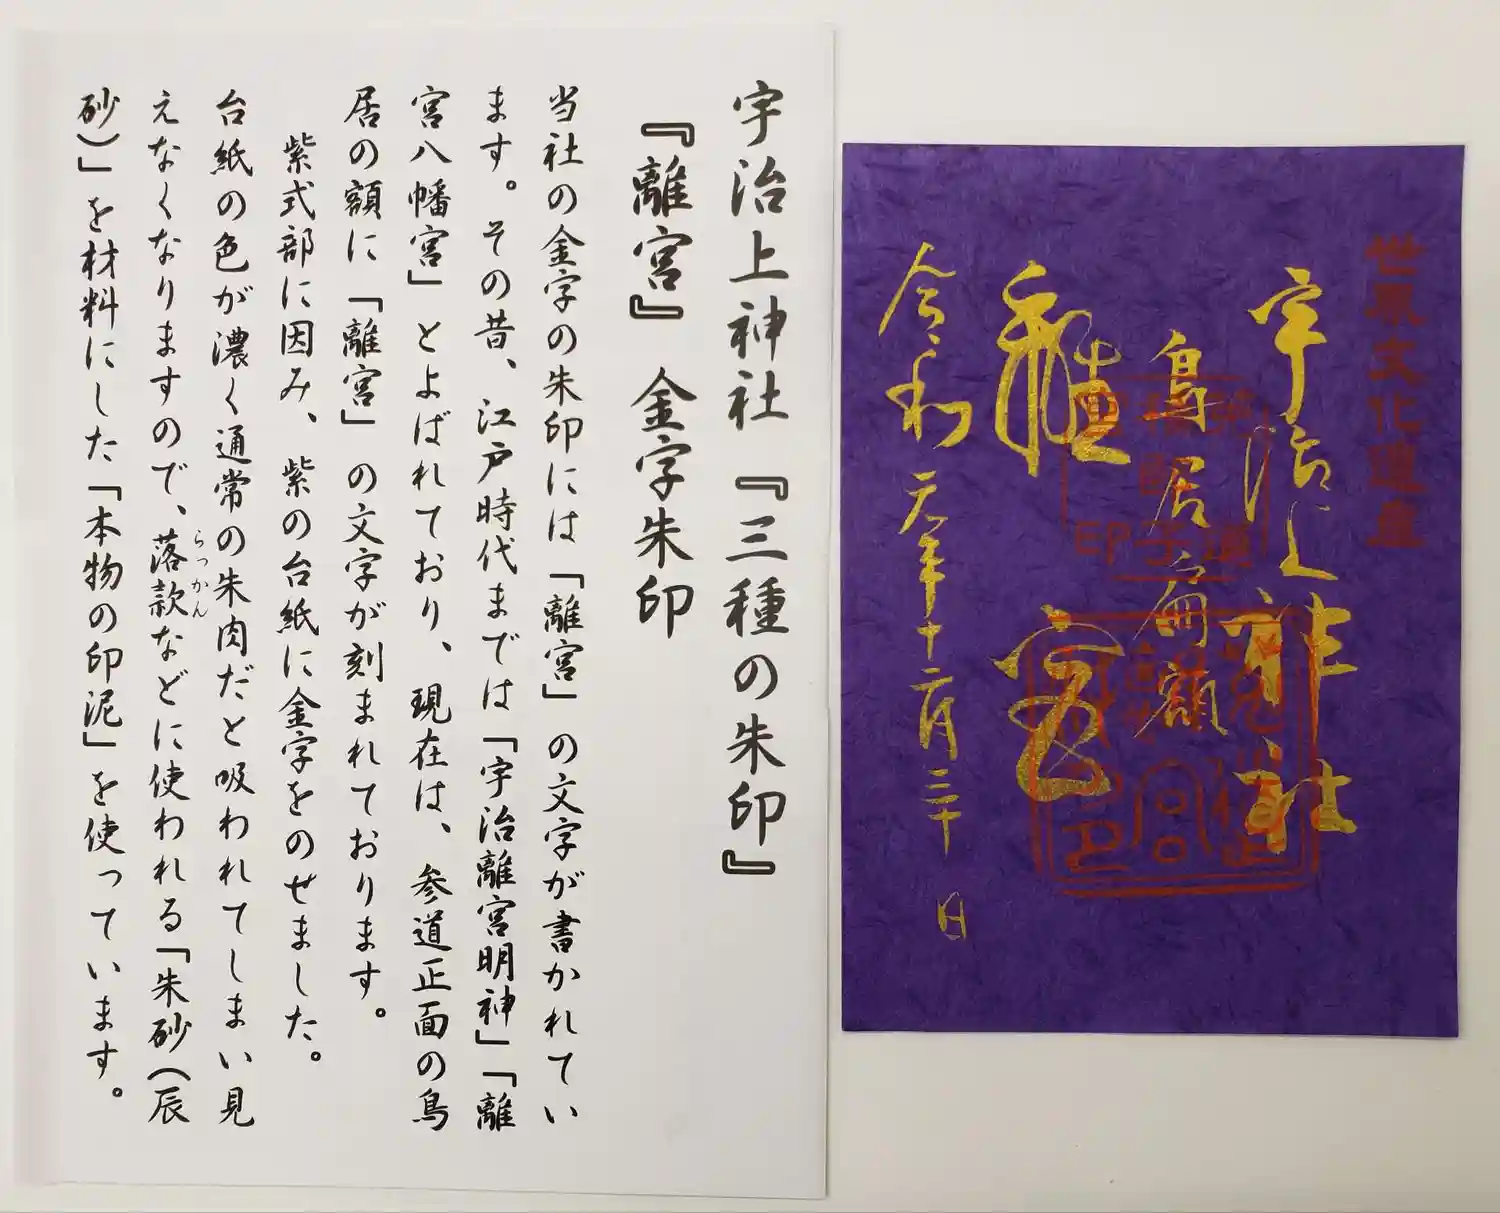 宇治上神社『三種の朱印』
『離宮』金字朱印
当社の金字の朱印には「離宮」の文字が書かれてい
ます。その昔、江戸時代までは「宇治離宮明神」「離
宮八幡宮」とよばれており、現在は、参道正面の鳥
居の額に「離宮」の文字が刻まれております。
紫式部に因み、紫の台紙に金字をのせました。
台紙の色が濃く通常の朱肉だと吸われてしまい見
えなくなりますので、落款などに使われる「朱砂(辰
らっかん
砂)」を材料にした「本物の印泥」を使っています。
世界文化遺産
宇治上神社
鳥居扁額
離宮
令和元年十二月三十日